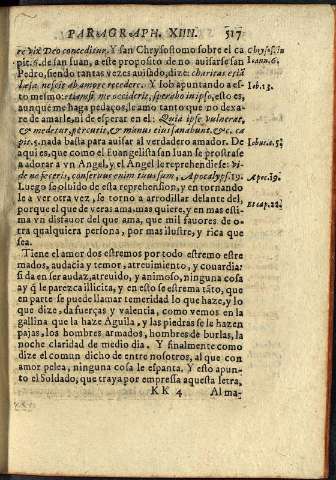 PARAGRAPH. XIIII. 517
re vix Deo conceditur. Y san Chrysostomo sobre el ca
pit. 6. de san Iuan, a este proposito de no auisarse san
Pedro, siendo tantas vezes auisado, dize: charitas
læsa nescit ab amore recedere. Y Iob apuntando
to mesmo: etiamsi me occiderit, sperabo in ipso, esto es,
aunque me haga pedaços, le amo tanto que no dexa-
re de amarle, ni de esperar en el: Quia ipse vulnerat,
& medetur, percutit, & manus eius sanabunt, &c. ca
pit. 5. nada basta para auisar al verdadero amador. De
aqui es, que como el Euangelista san Iuan se prostrase
a adorar a vn Angel, y el Angel le reprehendiese: Vi-
de ne feceris, conseruus enim tuus sum, Apocalyps. 19.
Luego se oluido de esta reprehension, y en tornando
le a ver otra vez, se torno a arrodillar delante del,
porque el que de veras ama, mas quiere, y en mas esti-
ma vn disfauor del que ama, que mil fauores de o-
tra qualquiera persona, por mas ilustre, y rica que
sea.
Tiene el amor dos estremos por todo estremo estre
mados, audacia y temor, atreuimiento, y couardia:
si da en ser audaz, atreuido, y animoso, ninguna cosa
ay q̃ le parezca illicita, y en esto se estrema tãto, que
en parte se puede llamar temeridad lo que haze, y lo
que dize, da fuerças y valentia, como vemos en la
gallina que la haze Aguila, y las piedras se le hazen
pajas, los hombres armados, hombres de burlas, la
noche claridad de medio dia. Y finalmente como
dize el comun dicho entre nosotros, al que con
amor pelea, ninguna cosa le espanta. Y esto apun-
to el Soldado, que traya por empressa aquesta letra,
KK 4 Al ma-
Chrys. in
Ioann. 6.
Iob. 13.
Iob. c. 5.
Apoc. 19.
Et cap. 22.